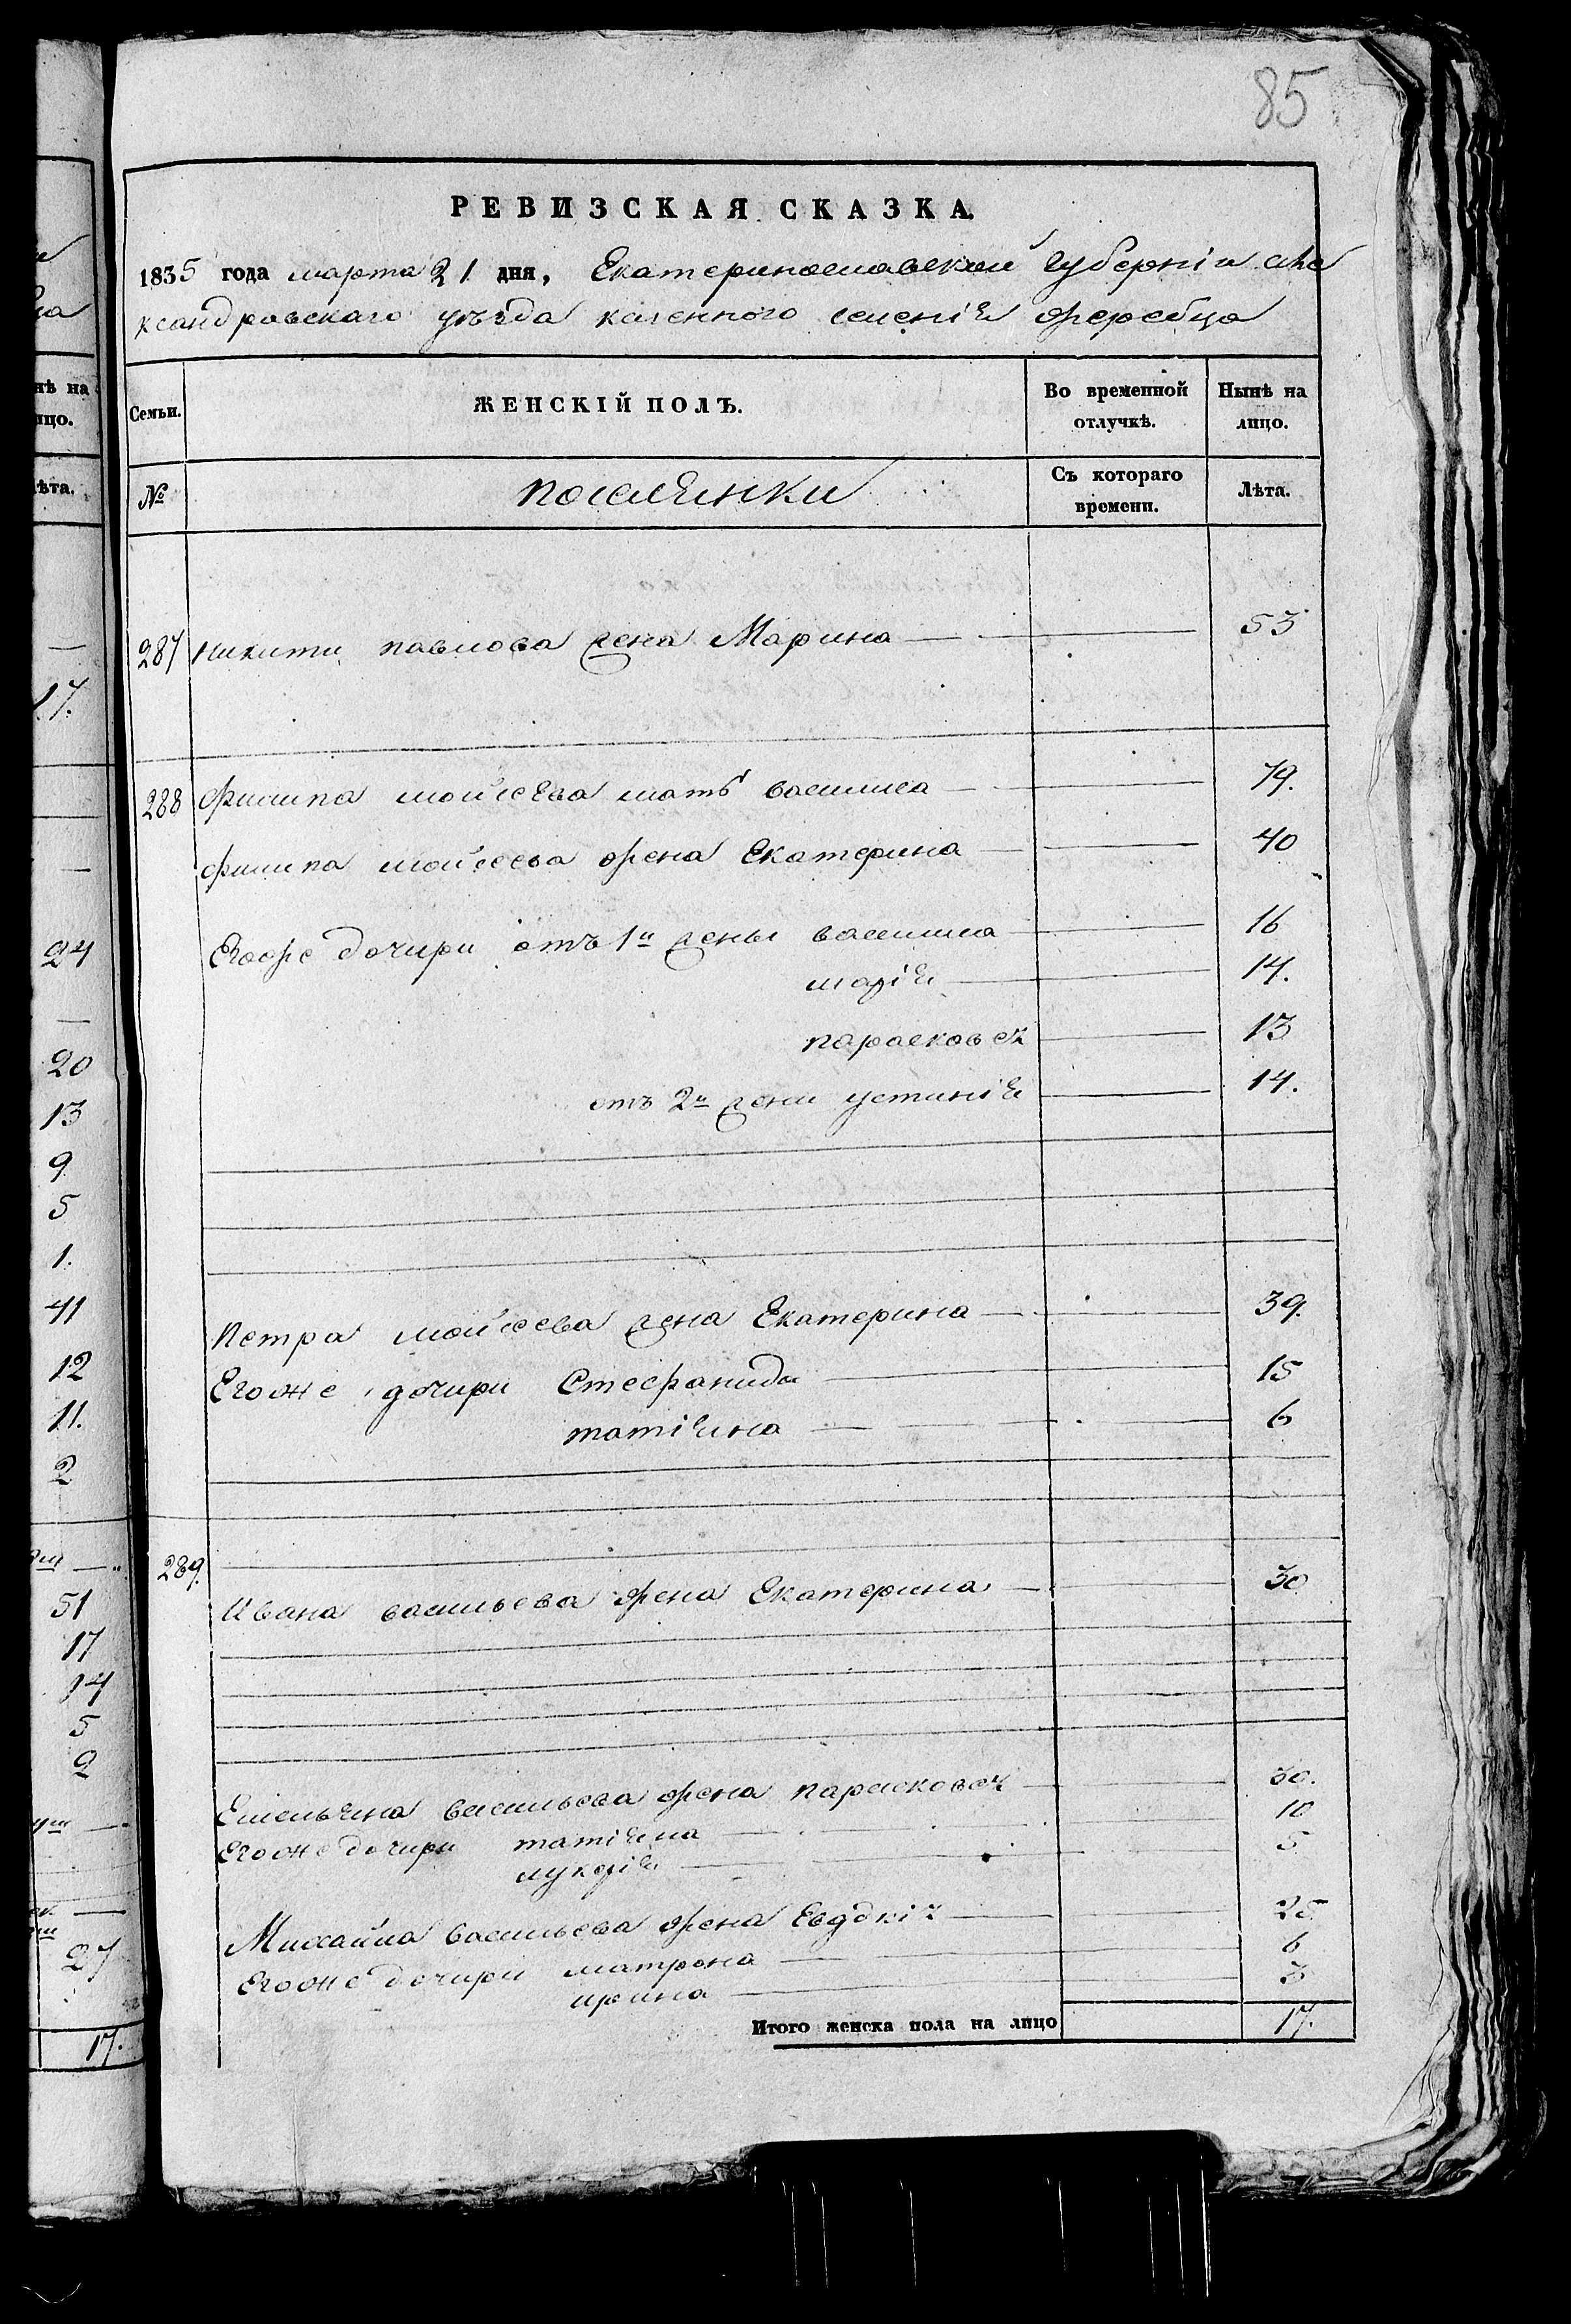 85
РЕВИЗСКАЯ СКАЗКА.
1835 года марта 21 дня, Екатеринославской губерніи але
ксандровскаго уѣзда казенного селенія жеребца
Семьи.
ЖЕНСКІЙ ПОЛЪ.
Во временной отлучкѣ.
Нынѣ на лицо.
№
поселянки
Съ котораго времени.
Лѣта.
287 никити павлова жена Марина 53
288 филипа мойсеева мать василиса 79.
филипа мойсеева жена Екатерина 40
Егоже дочири отъ 1й жены василиса 16
марія 14.
парасковея 13
отъ 2й жени устинія 14.
Петра мойсеева жена Екатерина 39.
Егоже дочири Стефанида 15
татіяна 6
289. Ивана васильева жена Екатерина 30
Емельяна васильева жена парасковея 30.
Егоже дочири татіяна 10
лукерія 5
Михайла васильева жена Евдокія 25
Егоже дочири матрона 6
ирина 3
Итого женска пола на лицо 17.
нѣ на
ицо.
ѣта.
17.
24
20
13
9
5
1.
41
12
11.
2
51
17
14
5
2
27
17.